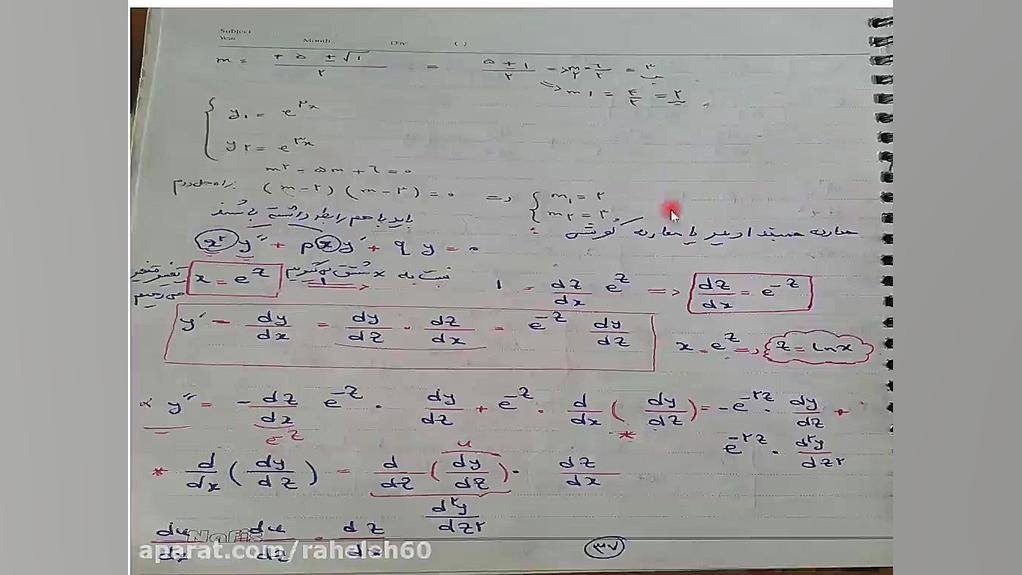 Subject
Year Month Day ( )
m = (+۵ ± √۱)/۲ = (۵ ± ۱)/۲ ⇒ m۲ = ۶/۲ = ۳
⇒ m۱ = ۴/۲ = ۲
y۱ = e^۲x
y۲ = e^۳x
m² - ۵m + ۶ = ۰
راه حل دوم: (m - ۲) (m - ۳) = ۰ ⇒ { m۱ = ۲
m۲ = ۳
باید با هم رابطه داشته باشند
معادله همسبند اویلر یا معادله کوشی:
x²y″ + pxy′ + qy = ۰
تغییر متغیر می‌دهیم x = e^z نسبت به x مشتق می‌گیریم ⇒ 1 = dz/dx e^z ⇒ dz/dx = e^-z
y′ = dy/dx = dy/dz · dz/dx = e^-z dy/dz
x = e^z ⇒ z = lnx
y″ = -dz/dx e^-z · dy/dz + e^-z · d/dx (dy/dz) = -e^-۲z · dy/dz +
e^-z
*
e^-۲z · d²y/dz²
* d/dx (dy/dz) = d/dz (dy/dz) · dz/dx
u
d²y/dz²
du/dx = du/dz · dz/dx
Nafis
۳۷
aparat.com/rahelah60